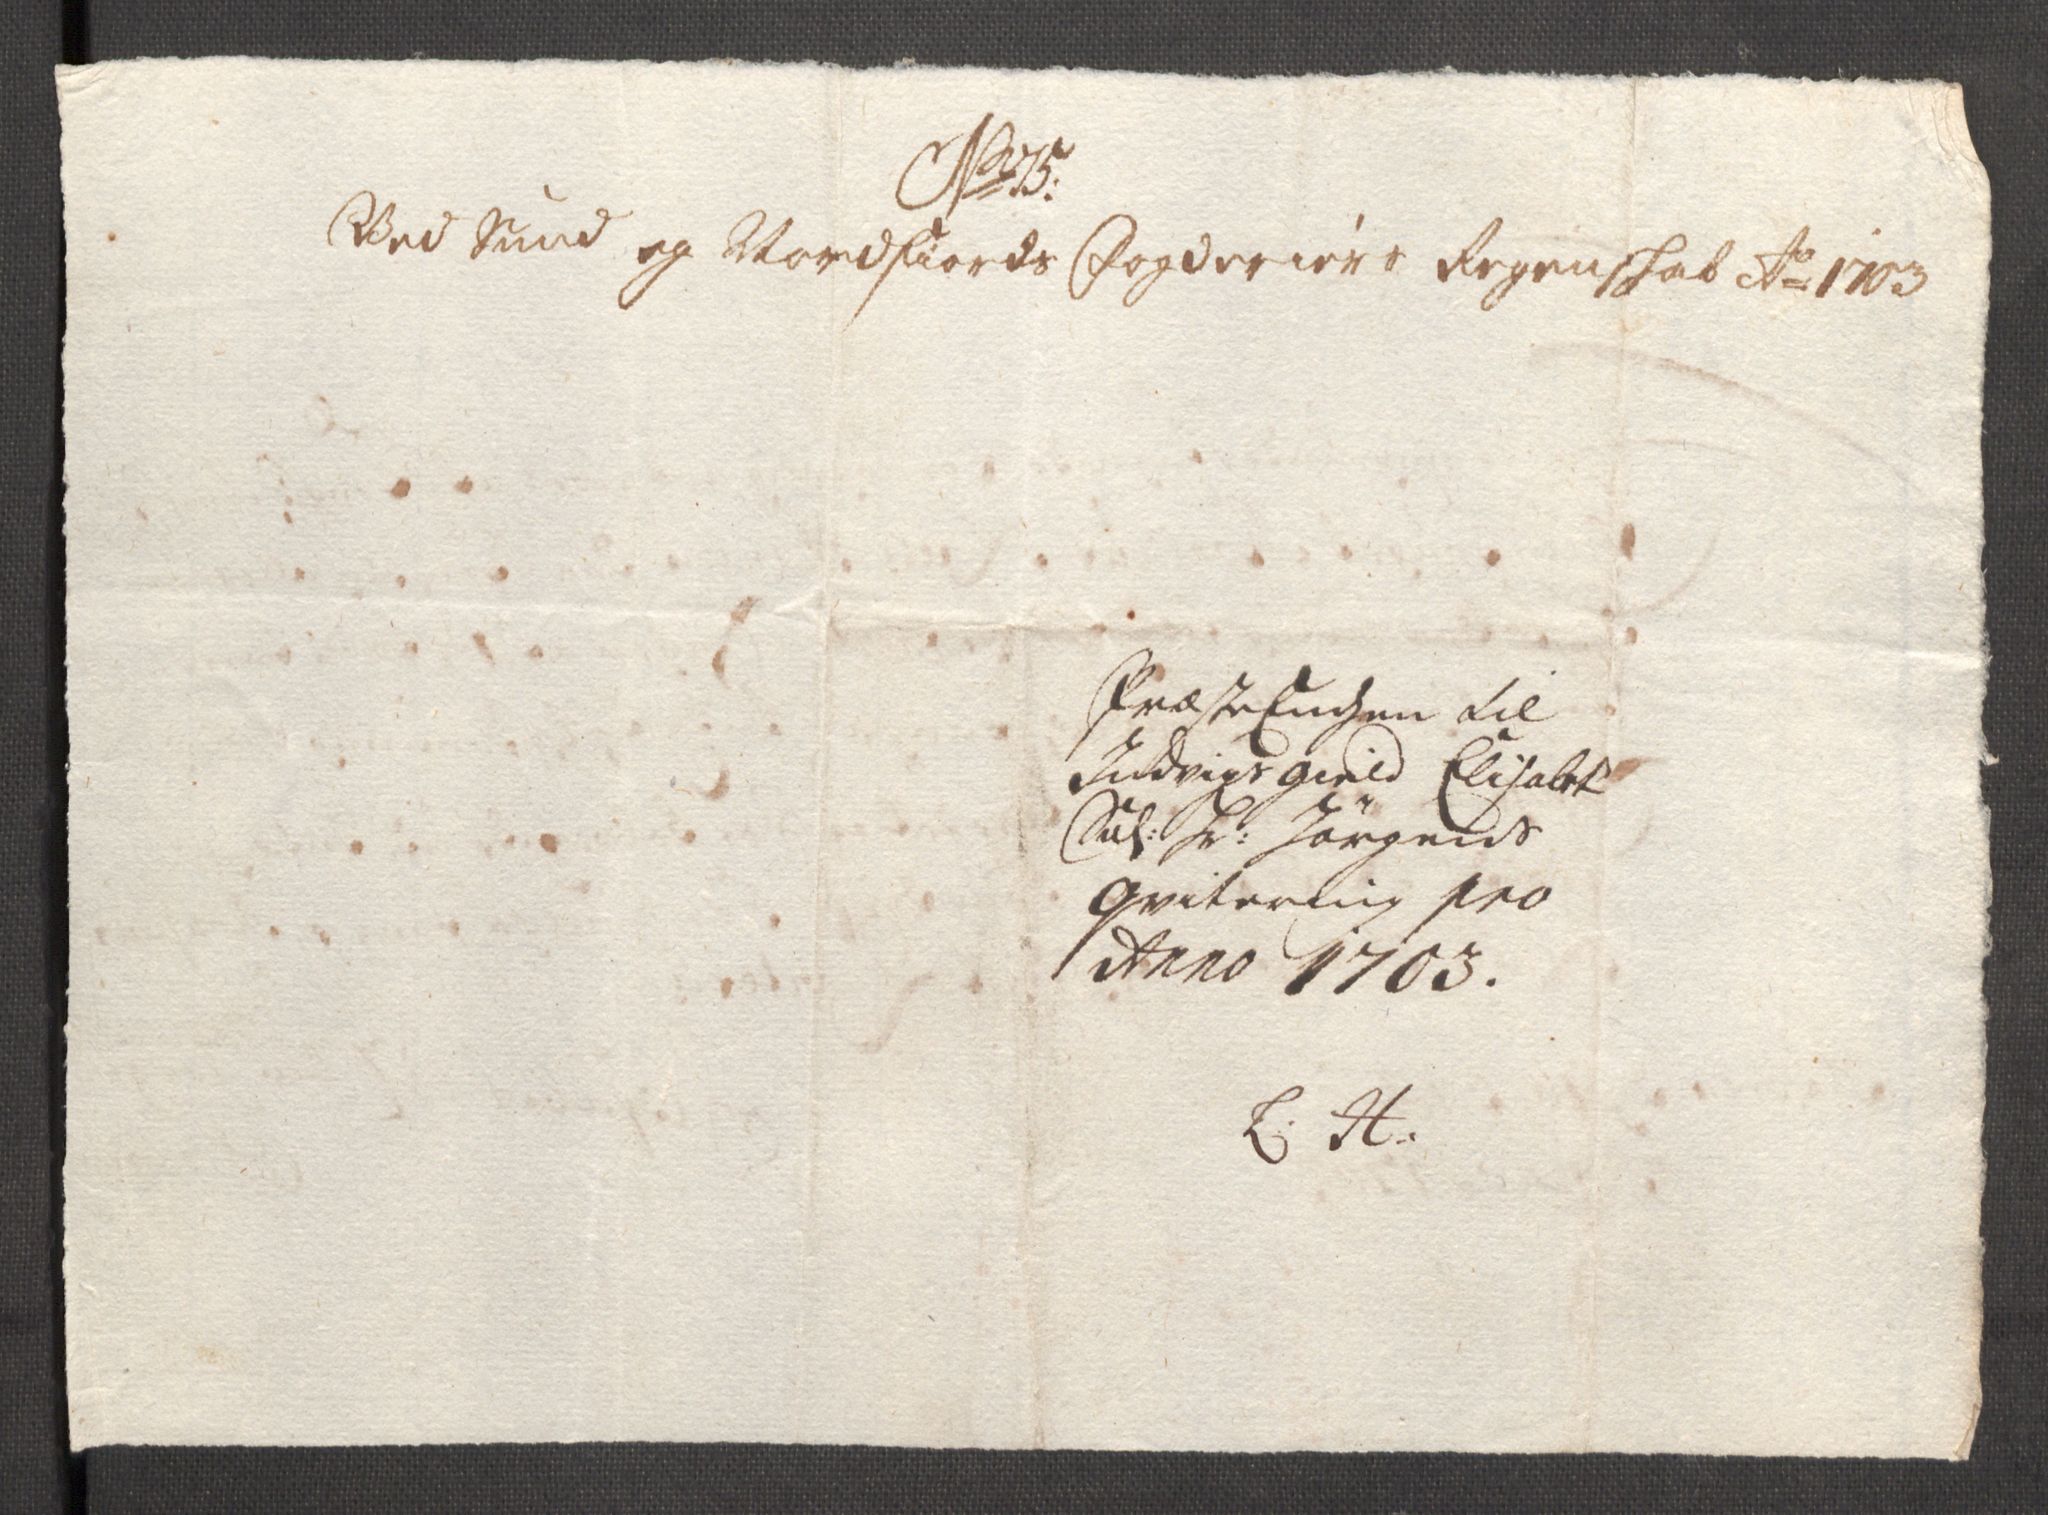 No 75.
Ved Sund og Nordfiords Fogderiers Regenskab Ao 1703
PræsteEnchen til
Indvigs gield Elisabet
Sal: Hr: Jörgens
qvitering pro
Anno 1703.
L. H.